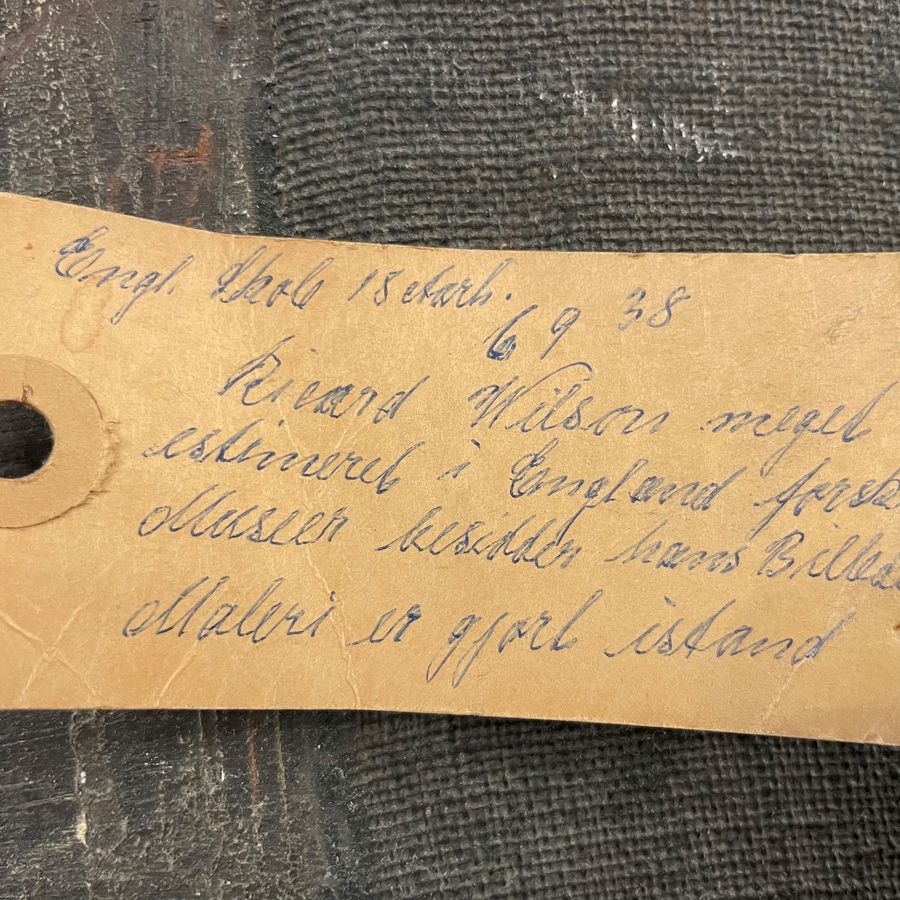 Engl. Skole 18 Aarh.
6 9 38
Ricard Wilson meget
estimeret i England forsk
Museer besidder hans Billed
Maleri er gjort istand